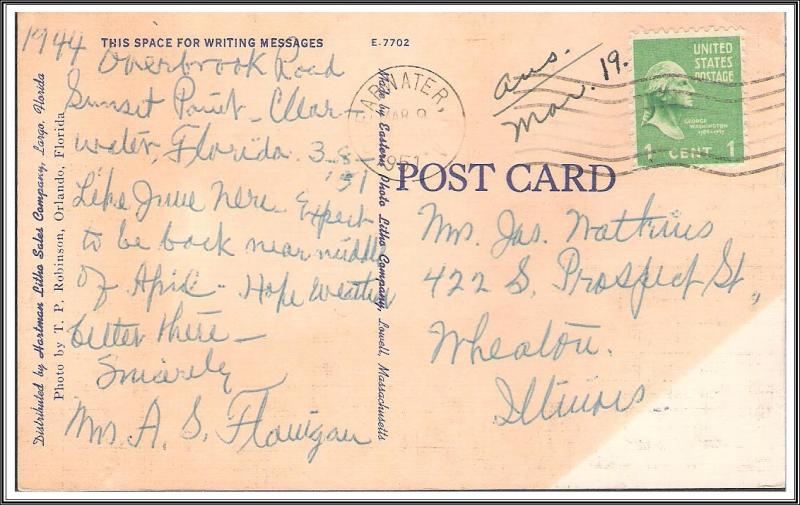 THIS SPACE FOR WRITING MESSAGES
E-7702
1944 Overbrook Road
Sunset Point - Clear-
water, Florida. 3-8-
'51
Like June here. Expect
to be back near middle
of April - Hope weather
better there -
Sincerely
Mrs A. S. Flanigan
Distributed by Hartman Litho Sales Company, Largo, Florida
Photo by T. P. Robinson, Orlando, Florida
Made by Eastern Photo Litho Company, Lowell, Massachusetts
ARWATER,
MAR 9
1951
ans.
Mar. 19.
UNITED
STATES
POSTAGE
GEORGE
WASHINGTON
1789-1797
1 CENT 1
POST CARD
Mrs. Jas. Watkins
422 S. Prospect St,
Wheaton.
Illinois.